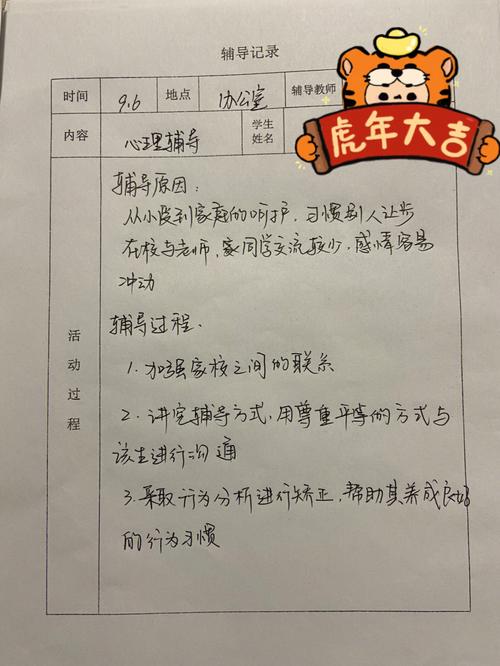 辅导记录
时间 9.6 地点 办公室 辅导教师
内容 心理辅导 学生姓名
虎年大吉
活动过程
辅导原因:
从小受到家庭的呵护,习惯别人让步
在校与老师,家同学交流较少,感情容易
冲动
辅导过程.
1.加强家校之间的联系
2.讲究辅导方式,用尊重平等的方式与
该生进行沟通
3.采取行为分析进行矫正,帮助其养成良好
的行为习惯